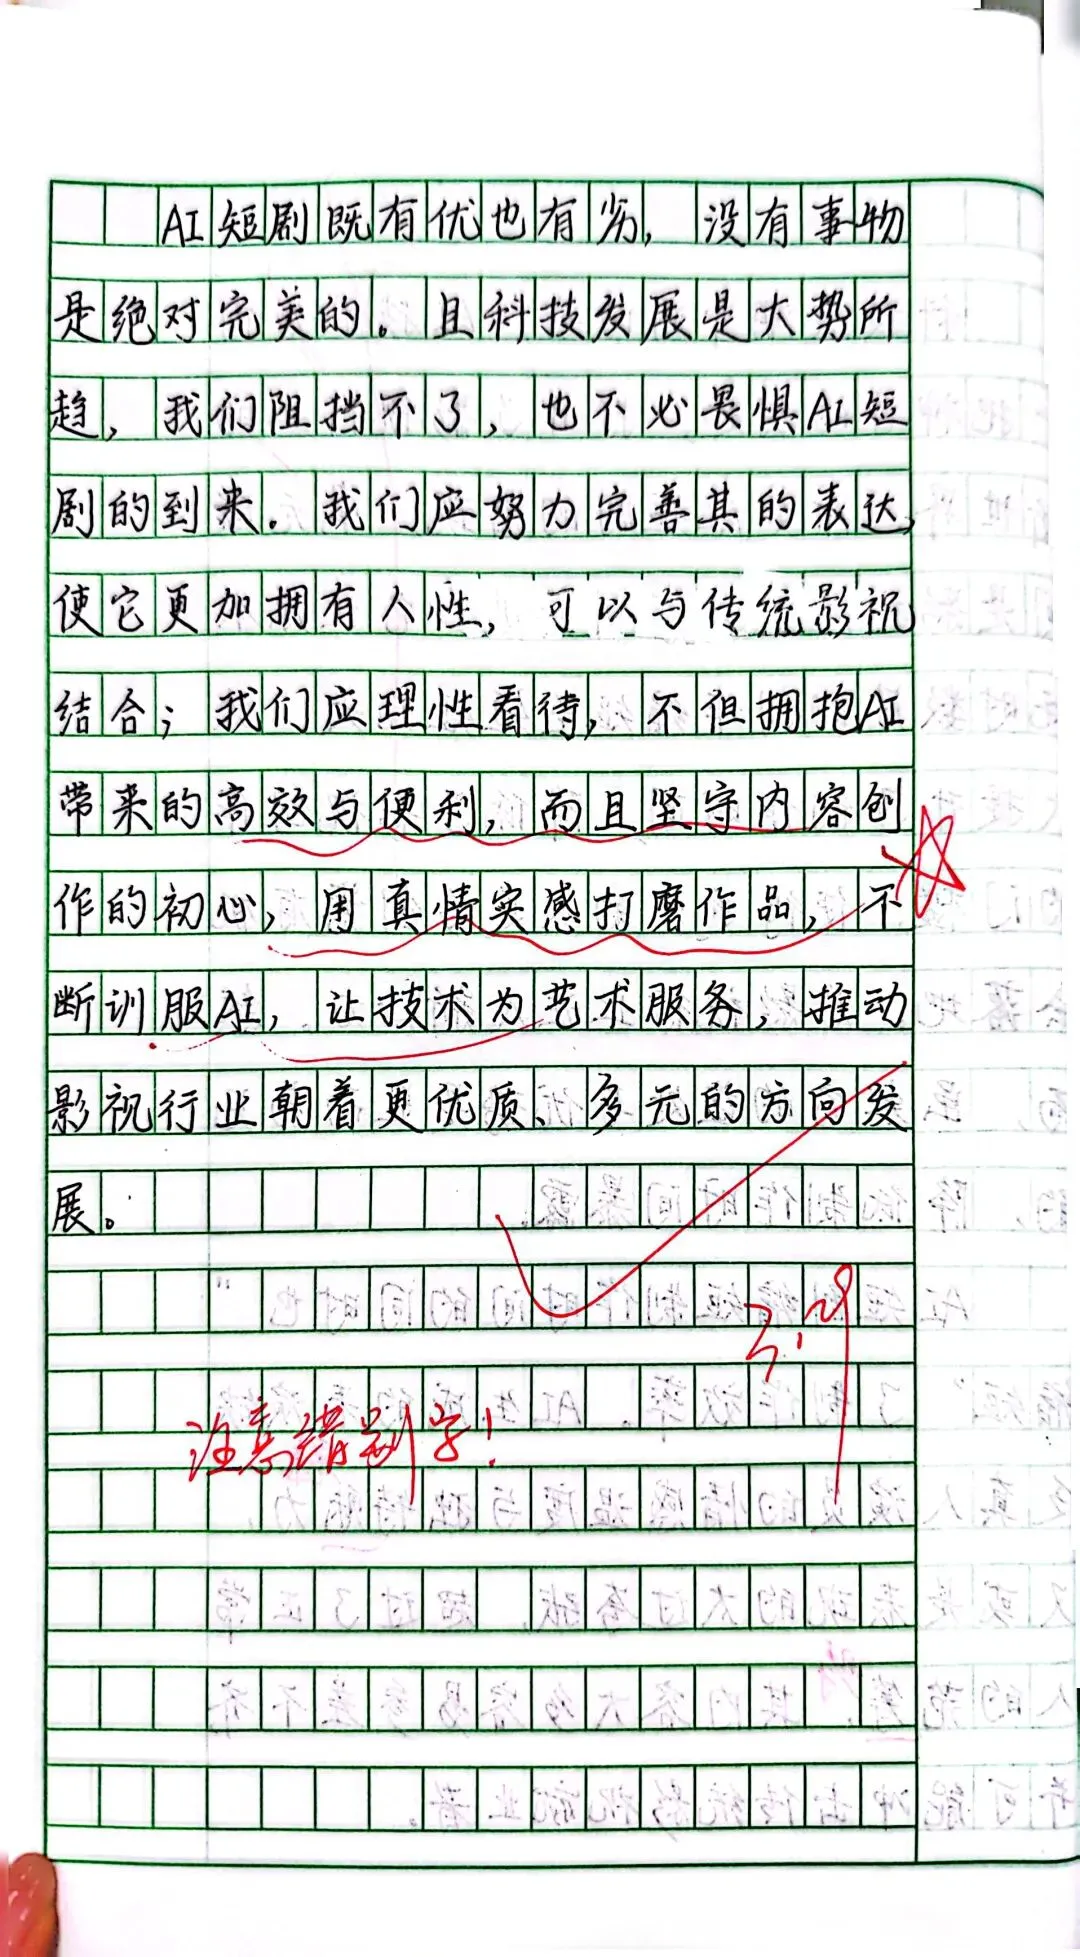 AI短剧既有优也有劣，没有事物
是绝对完美的。且科技发展是大势所
趋，我们阻挡不了，也不必畏惧AI短
剧的到来。我们应努力完善其的表达，
使它更加拥有人性，可以与传统影视
结合；我们应理性看待，不但拥抱AI
带来的高效与便利，而且坚守内容创
作的初心，用真情实感打磨作品，不
断训服AI，让技术为艺术服务，推动
影视行业朝着更优质、多元的方向发
展。
注意错别字！